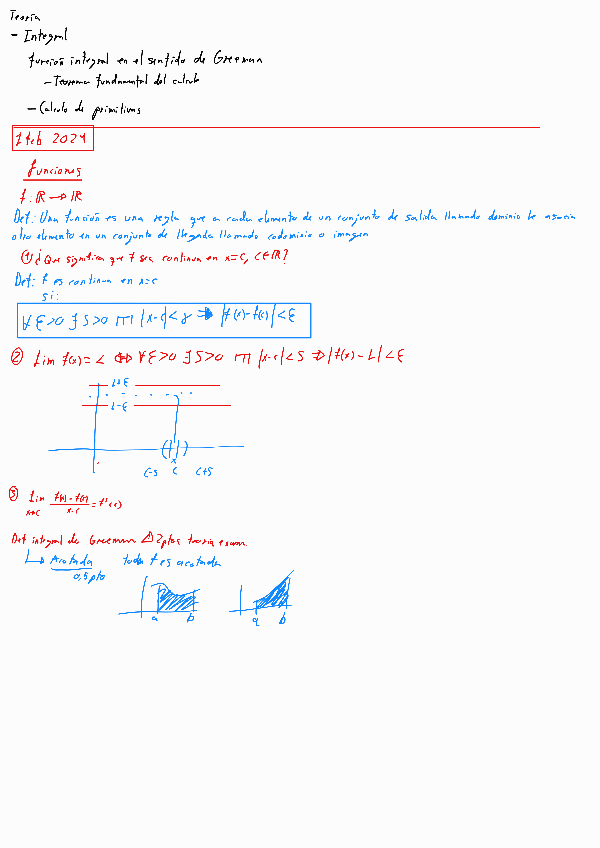 Teoría
- Integral
función integral en el sentido de Greeman
- Teorema fundamental del calculo
- Calculo de primitivas
1 feb 2024
funciones
f: ℝ → ℝ
Def: Una función es una regla que a cada elemento de un conjunto de salida llamado dominio le asocia
otro elemento en un conjunto de llegada llamado codominio o imagen
① ¿Que significa que f sea continua en x=c, c∈ℝ?
Def: f es continua en x=c
si:
∀ε>0 ∃δ>0 m |x-c|<δ ⇒ |f(x)-f(c)|<ε
② Lim f(x)=L ⇔ ∀ε>0 ∃δ>0 m |x-c|<δ ⇒ |f(x)-L|<ε
L+ε
L-ε
c-δ c c+δ
③ Lim x→c f(x)-f(c) / x-c = f'(c)
Def integral de Greeman ⚠ 2ptos teoria examen
↳ Acotada toda f es acotada
0,5pto
a b a b